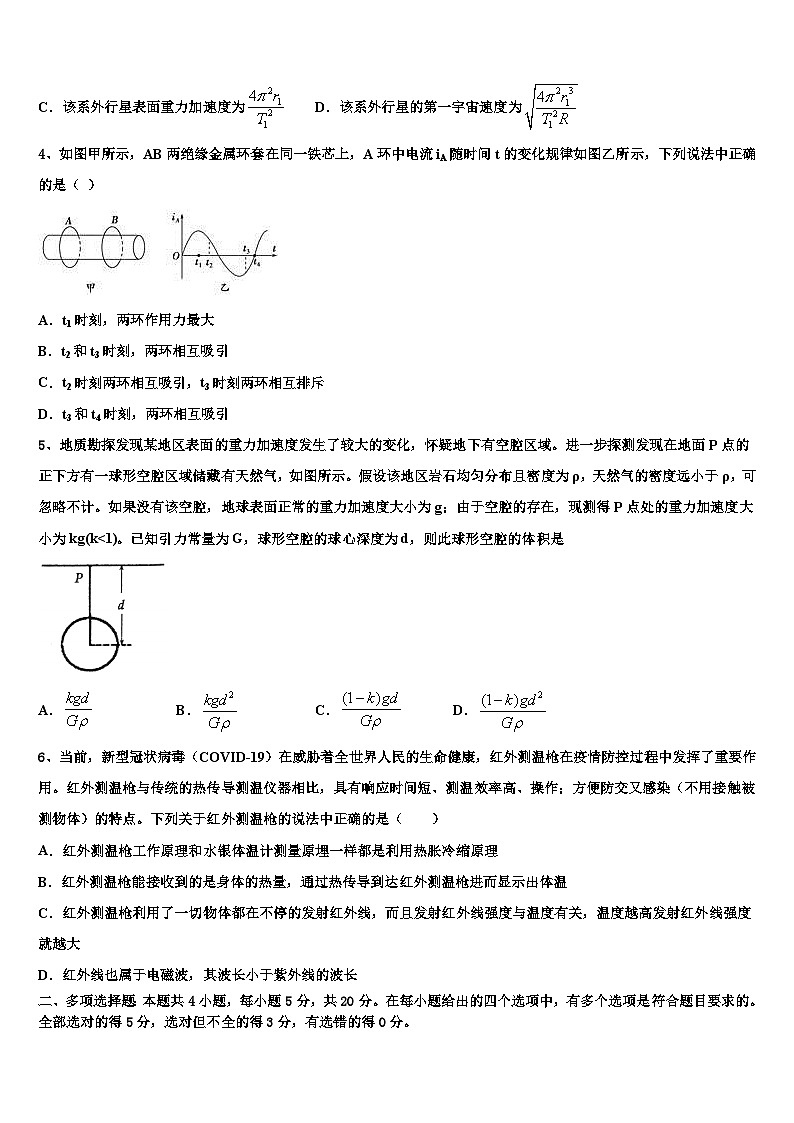 C．该系外行星表面重力加速度为 4π²r₁/T₁² D．该系外行星的第一宇宙速度为 √(4π²r₁³/(T₁²R))
4、如图甲所示，AB 两绝缘金属环套在同一铁芯上，A 环中电流 iA 随时间 t 的变化规律如图乙所示，下列说法中正确
的是（ ）
A B iA O t₁ t₂ t₃ t₄ t
甲 乙
A．t₁ 时刻，两环作用力最大
B．t₂ 和 t₃ 时刻，两环相互吸引
C．t₂ 时刻两环相互吸引，t₃ 时刻两环相互排斥
D．t₃ 和 t₄ 时刻，两环相互吸引
5、地质勘探发现某地区表面的重力加速度发生了较大的变化，怀疑地下有空腔区域。进一步探测发现在地面 P 点的
正下方有一球形空腔区域储藏有天然气，如图所示。假设该地区岩石均匀分布且密度为 ρ，天然气的密度远小于 ρ，可
忽略不计。如果没有该空腔，地球表面正常的重力加速度大小为 g；由于空腔的存在，现测得 P 点处的重力加速度大
小为 kg(k<1)。已知引力常量为 G，球形空腔的球心深度为 d，则此球形空腔的体积是
P
d
A．kgd/Gρ B．kgd²/Gρ C．(1−k)gd/Gρ D．(1−k)gd²/Gρ
6、当前，新型冠状病毒（COVID-19）在威胁着全世界人民的生命健康，红外测温枪在疫情防控过程中发挥了重要作
用。红外测温枪与传统的热传导测温仪器相比，具有响应时间短、测温效率高、操作；方便防交又感染（不用接触被
测物体）的特点。下列关于红外测温枪的说法中正确的是（ ）
A．红外测温枪工作原理和水银体温计测量原埋一样都是利用热胀冷缩原理
B．红外测温枪能接收到的是身体的热量，通过热传导到达红外测温枪进而显示出体温
C．红外测温枪利用了一切物体都在不停的发射红外线，而且发射红外线强度与温度有关，温度越高发射红外线强度
就越大
D．红外线也属于电磁波，其波长小于紫外线的波长
二、多项选择题：本题共 4 小题，每小题 5 分，共 20 分。在每小题给出的四个选项中，有多个选项是符合题目要求的。
全部选对的得 5 分，选对但不全的得 3 分，有选错的得 0 分。